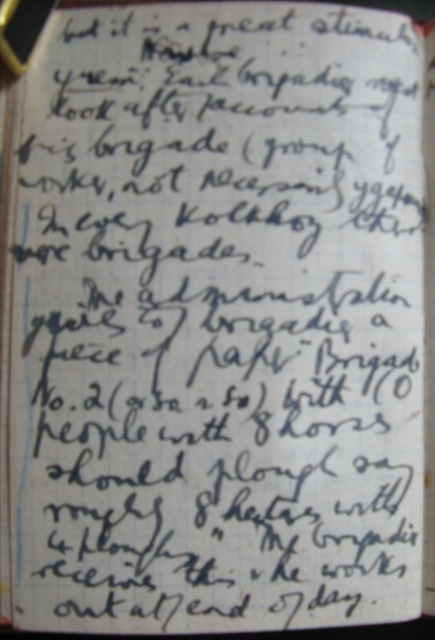 but it is a great stimulus
Each brigadier must
look after accounts of
his brigade (group of
works, not necessarily
In every Kolkhoz there
more brigades.
The administration
gives to brigadier a
piece of paper "Brigade
No. 2 (or so & so) with 10
people with 8 horses
should plough say
roughly 8 hectares with
4 ploughs" The brigadier
receives this & he works
out at end of day.